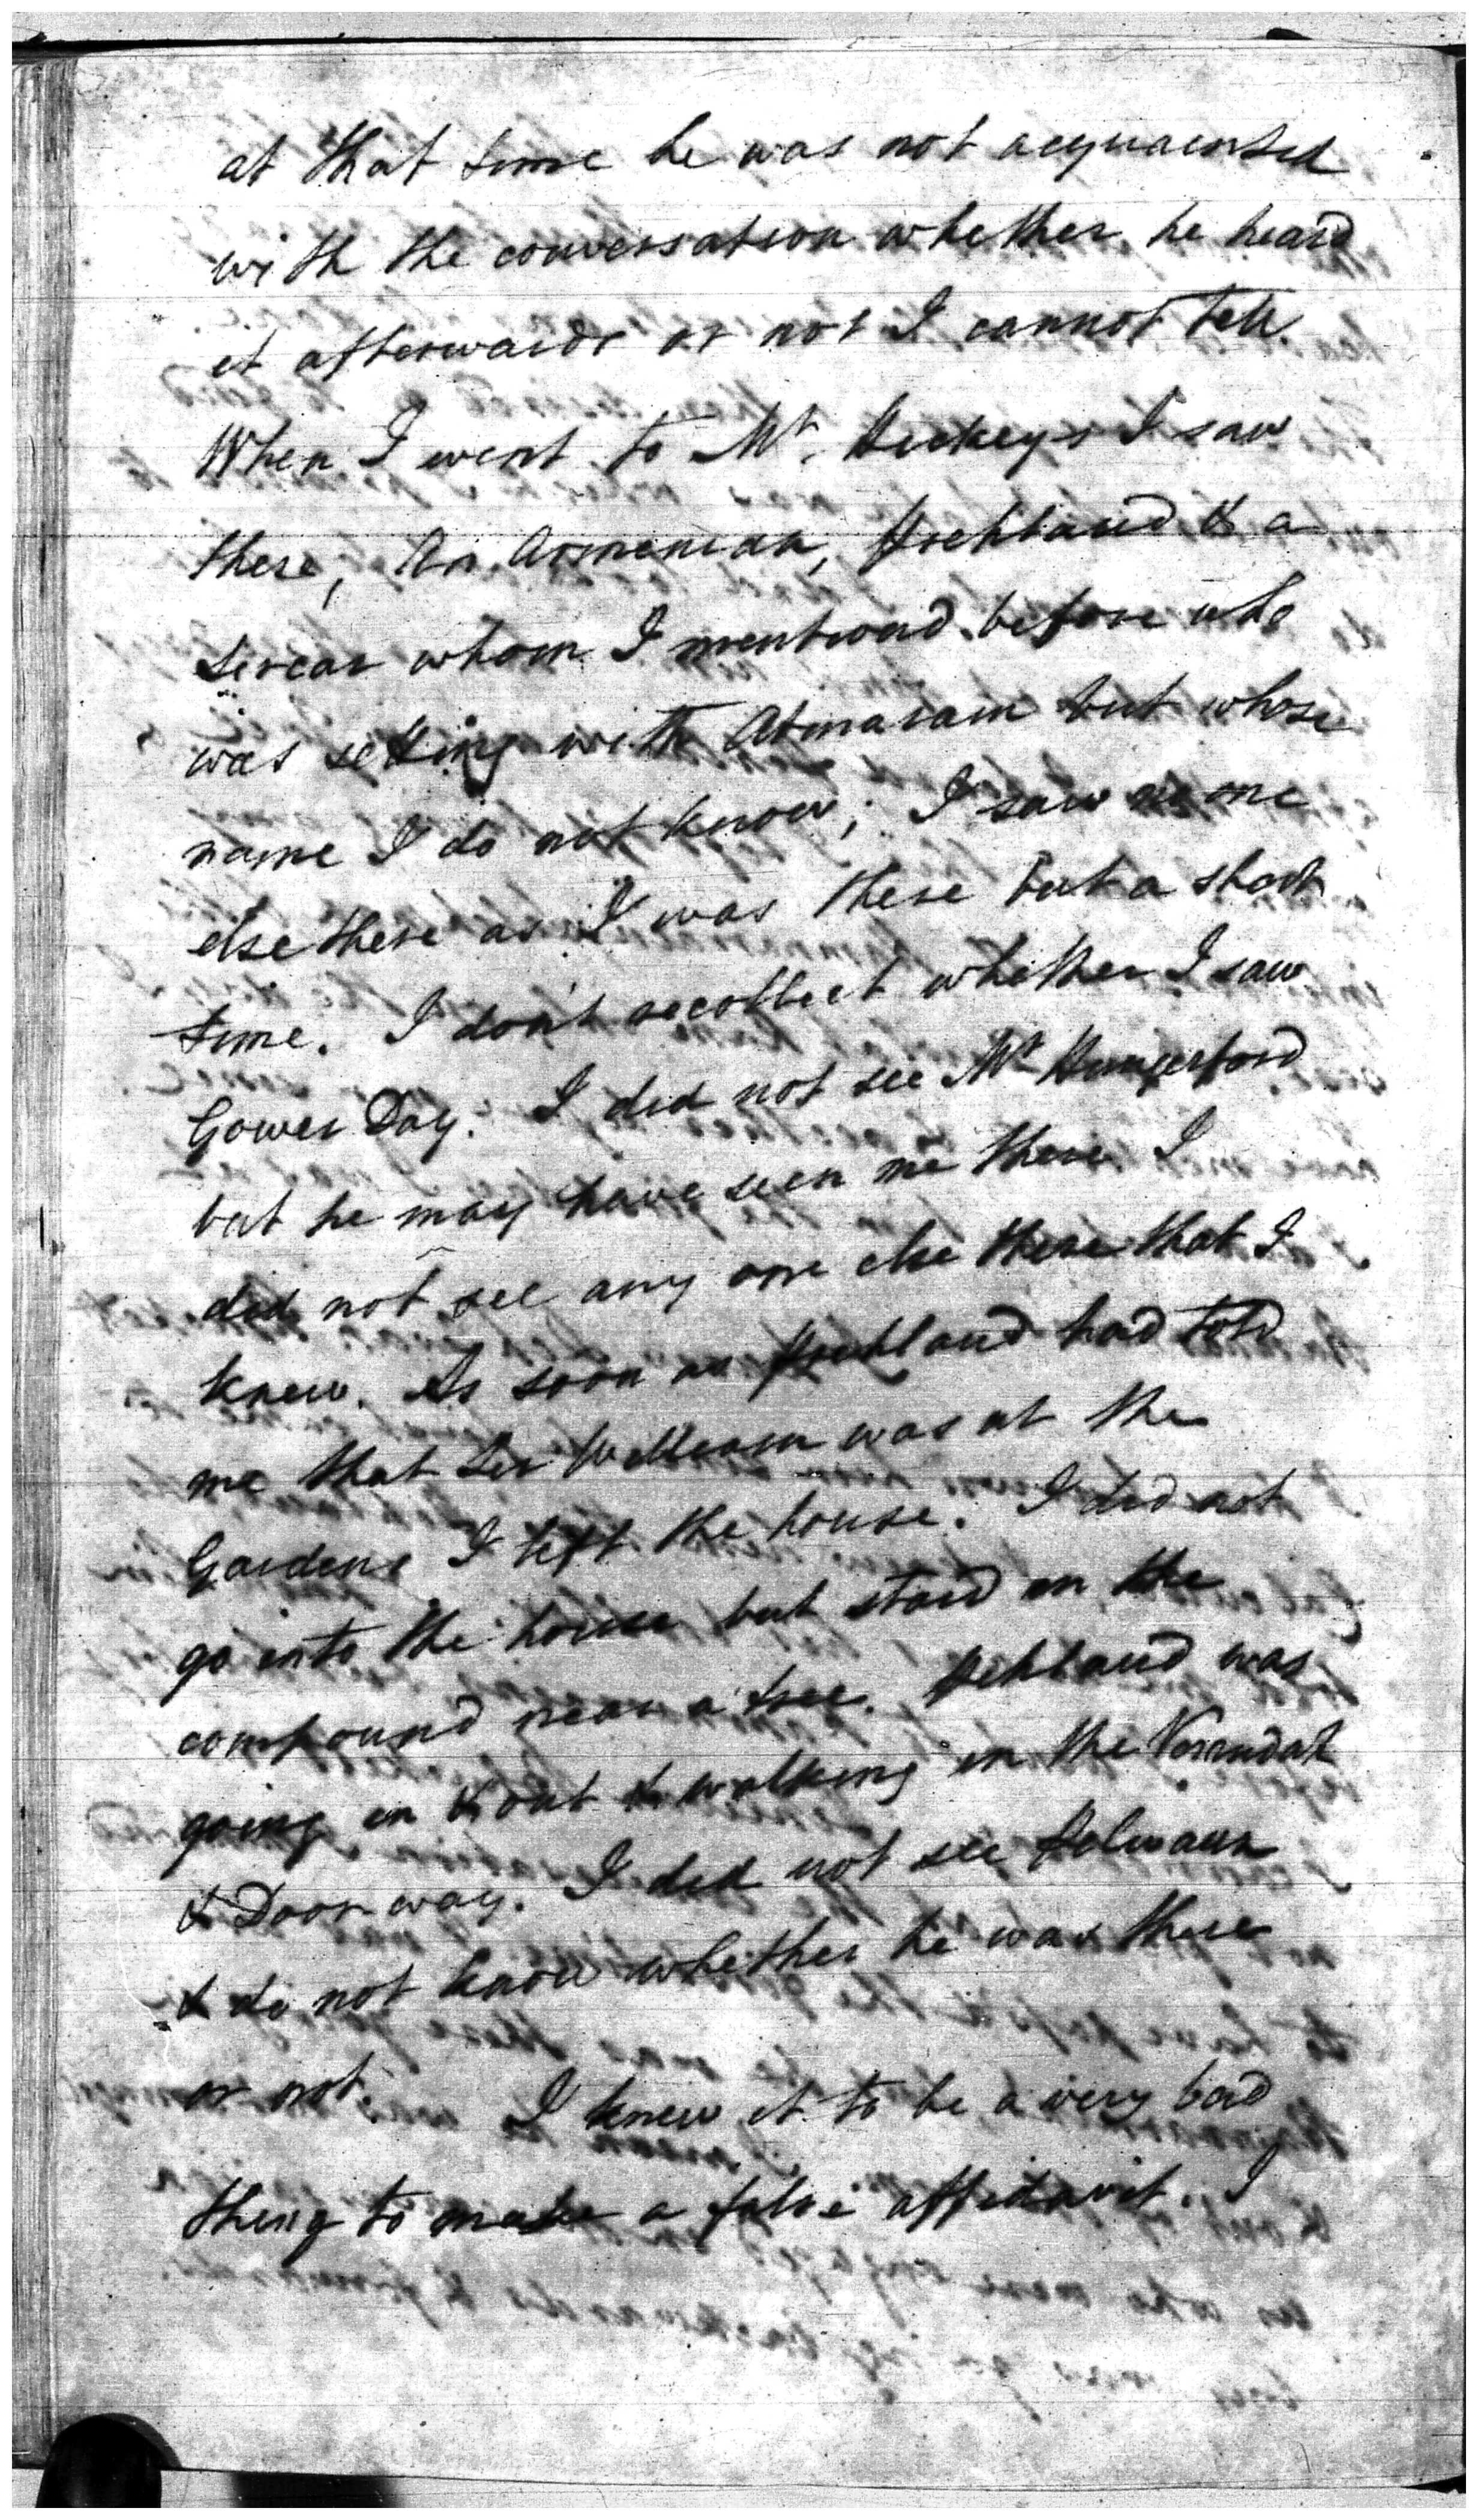 at that time he was not acquainted
with the conversation whether he heard
it afterwards or not I cannot tell.
When I went to Mr. Hickeys I saw
there, An Armenian, & a
Sircar whom I mentioned before who
was setting with Atmaram but whose
name I do not know; I saw no one
else there as I was there but a short
time. I don't recollect whether I saw
Gower Day. I did not see Mr Hungerford
but he may have seen me there. I
did not see any one else there that I
knew. As soon as had told
me that Sir William was at the
Gardens I left the house. I did not
go into the house but staid in the
compound near a tree. was
going in & out & walking in the Verandah
& Doorway. I did not see
& do not know whether he was there
or not. I knew it to be a very bad
thing to make a false affidavit. I